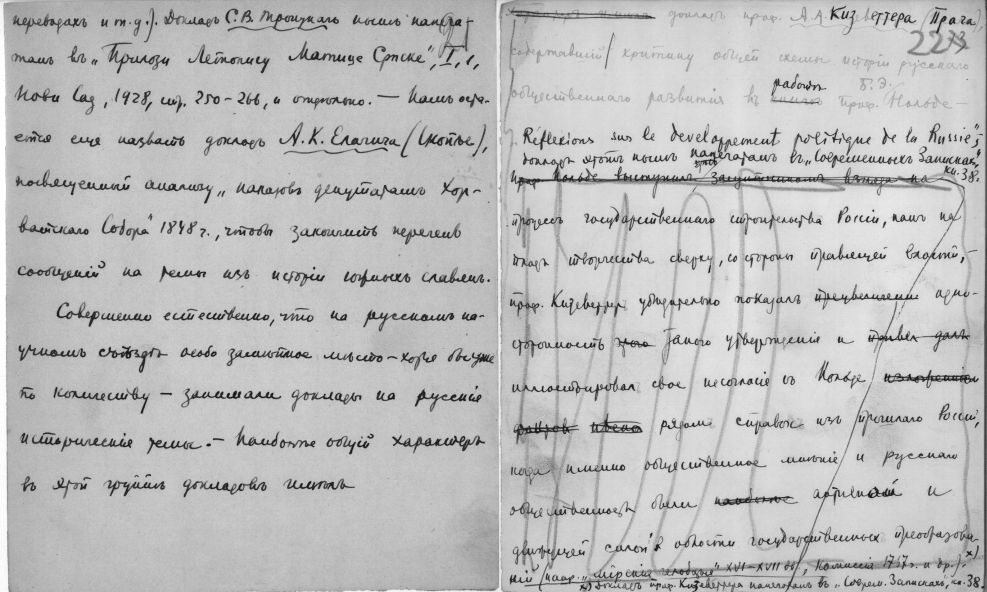 переводахъ и т.д.). Докладъ С.В. Троицкаго нынѣ напеча-
танъ въ "Прилози Летопису Матице Српске", I, 1,
Нови Сад, 1928, стр. 250-266, и отдѣльно. — Намъ оста-
ется еще назвать докладъ А.К. Елачича (Скопье),
посвященный анализу "наказовъ депутатамъ Хор-
ватскаго Собора" 1848 г., чтобы закончить перечень
сообщенiй на темы изъ исторiи южныхъ славянъ.
Совершенно естественно, что на русскомъ на-
учномъ съѣздѣ особо замѣтное мѣсто — хотя бы уже
по количеству — занимали доклады на русскiе
историческiе темы. — Наиболѣе общiй характеръ
въ этой группѣ докладовъ имѣлъ
докладъ проф. А.А. Кизеветтера (Прага),
223
содержавшiй критику общей схемы исторiи русскаго
общественнаго развитiя въ книгѣ работѣ проф. Б.Э. Нольде —
"Réflexions sur le developpement politique de la Russie";
докладъ этотъ нынѣ напечатанъ въ "Современныхъ Запискахъ", кн. 38.
проф. Нольде выступилъ защитникомъ взгляда на
процессъ государственнаго строительства Россiи, какъ на
плодъ творчества сверху, со стороны правящей власти, —
проф. Кизеветтеръ убѣдительно показалъ преувеличенiе одно-
сторонность этого такого утвержденiя и
иллюстрировалъ свое несогласiе съ Нольде
рядомъ справокъ изъ прошлаго Россiи,
когда именно общественное мнѣнiе и русская
общественность были наиболѣе активной и
движущей силой въ области государственныхъ преобразова-
нiй (напр. "мiрскiя челобитья" XVI-XVII вв., Комиссiя 1767 г. и др.). x)
x) Докладъ проф. Кизеветтера напечатанъ въ "Соврем. Запискахъ", кн. 38.